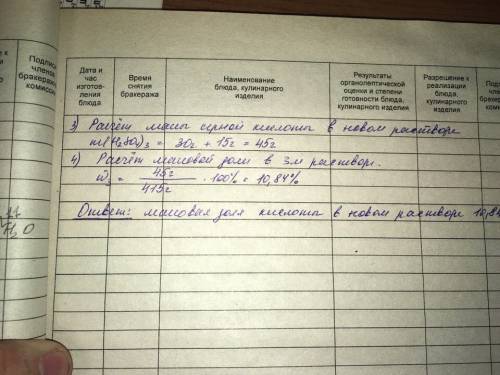 к
Подпис
членов
бракераж
комисси
Дата и
час
изготов-
ления
блюда
Время
снятия
бракеража
Наименование
блюда, кулинарного
изделия
Результаты
органолептической
оценки и степени
готовности блюда,
кулинарного изделия
Разрешение к
реализации
блюда,
кулинарного
изделия
Под
чле
брак
ком
3) Расчёт массы серной кислоты в новом растворе
m(H₂SO₄)₃ = 30г + 15г = 45г
4) Расчёт массовой доли в 3м растворе.
w₃ = 45г / 415г · 100% = 10,84%
Ответ: массовая доля кислоты в новом растворе 10,84
H₂O